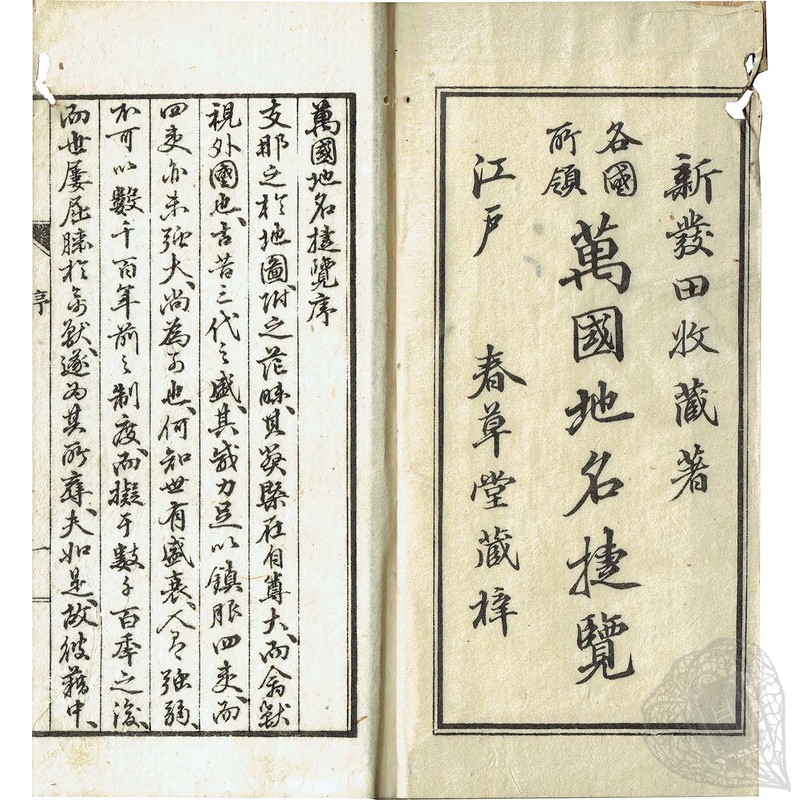 新發田收藏著
各國
所領
萬國地名捷覽
江戸 春草堂藏梓
萬國地名捷覽序
支那之於地圖、附之茫昧、其在自尊大、而禽獸
視外國也、古昔三代之盛、其威力足以鎮服四夷、而
四夷亦未强大、尚為可也、何知世有盛衰、人有强弱、
不可以數千百年前之制度、而擬于數千百年之後、
而世屢屈膝於禽獸、遂為其所奪、夫如是、故彼籍中、
序
一